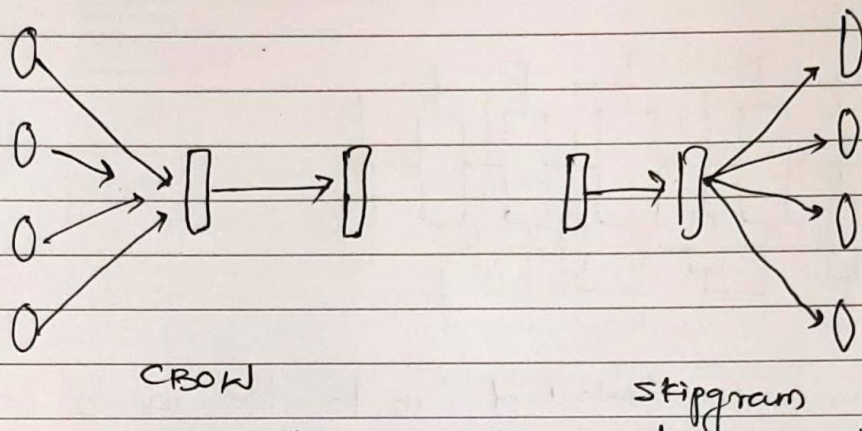 CBOW
skipgram